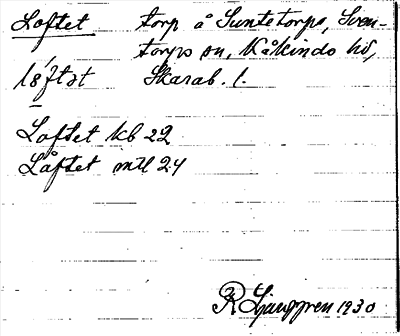 Loftet torp å Suntetorps, Sven-
torps sn, Kåkinds hd,
lóftət Skarab. l.
Loftet kb 22
Låftet mtl 24
R Ljunggren 1930